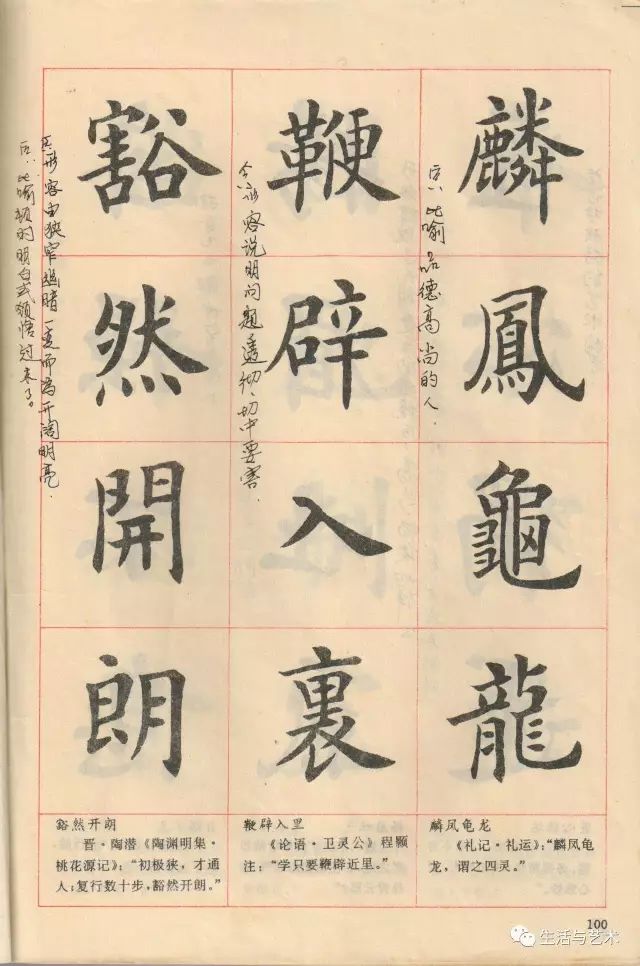 麟鳳龜龍
比喻品德高尚的人.
鞭辟入裏
形容说明问题透彻、切中要害.
豁然開朗
形容由狭窄幽暗一变而为开阔明亮
比喻顿时明白或领悟过来了。
麟凤龟龙
《礼记·礼运》:“麟凤龟
龙,谓之四灵。”
鞭辟入里
《论语·卫灵公》程颢
注:“学只要鞭辟近里。”
豁然开朗
晋·陶潜《陶渊明集·
桃花源记》:“初极狭,才通
人;复行数十步,豁然开朗。”
100
生活与艺术